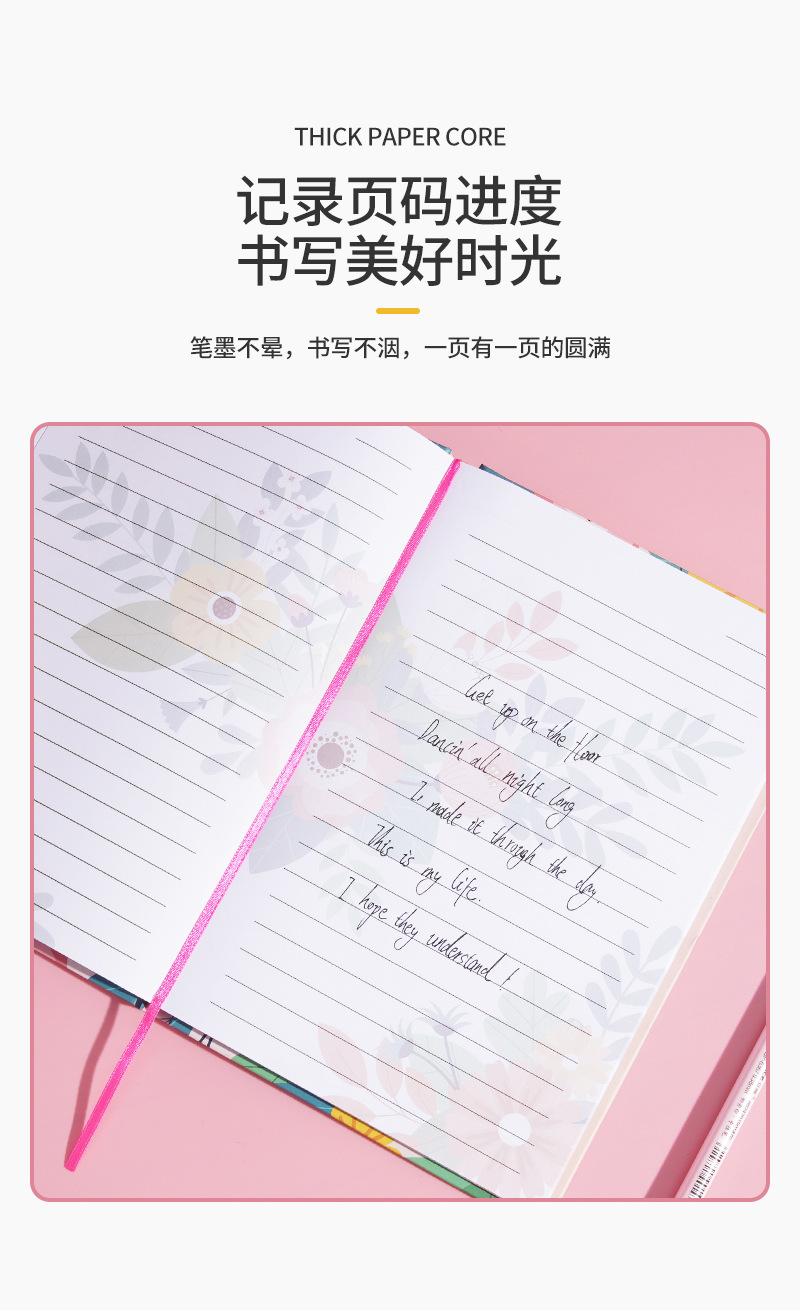 THICK PAPER CORE
记录页码进度
书写美好时光
笔墨不晕，书写不洇，一页有一页的圆满
Get up on the floor
Dancin' all night long
I made it through the day.
This is my life.
I hope they understand !